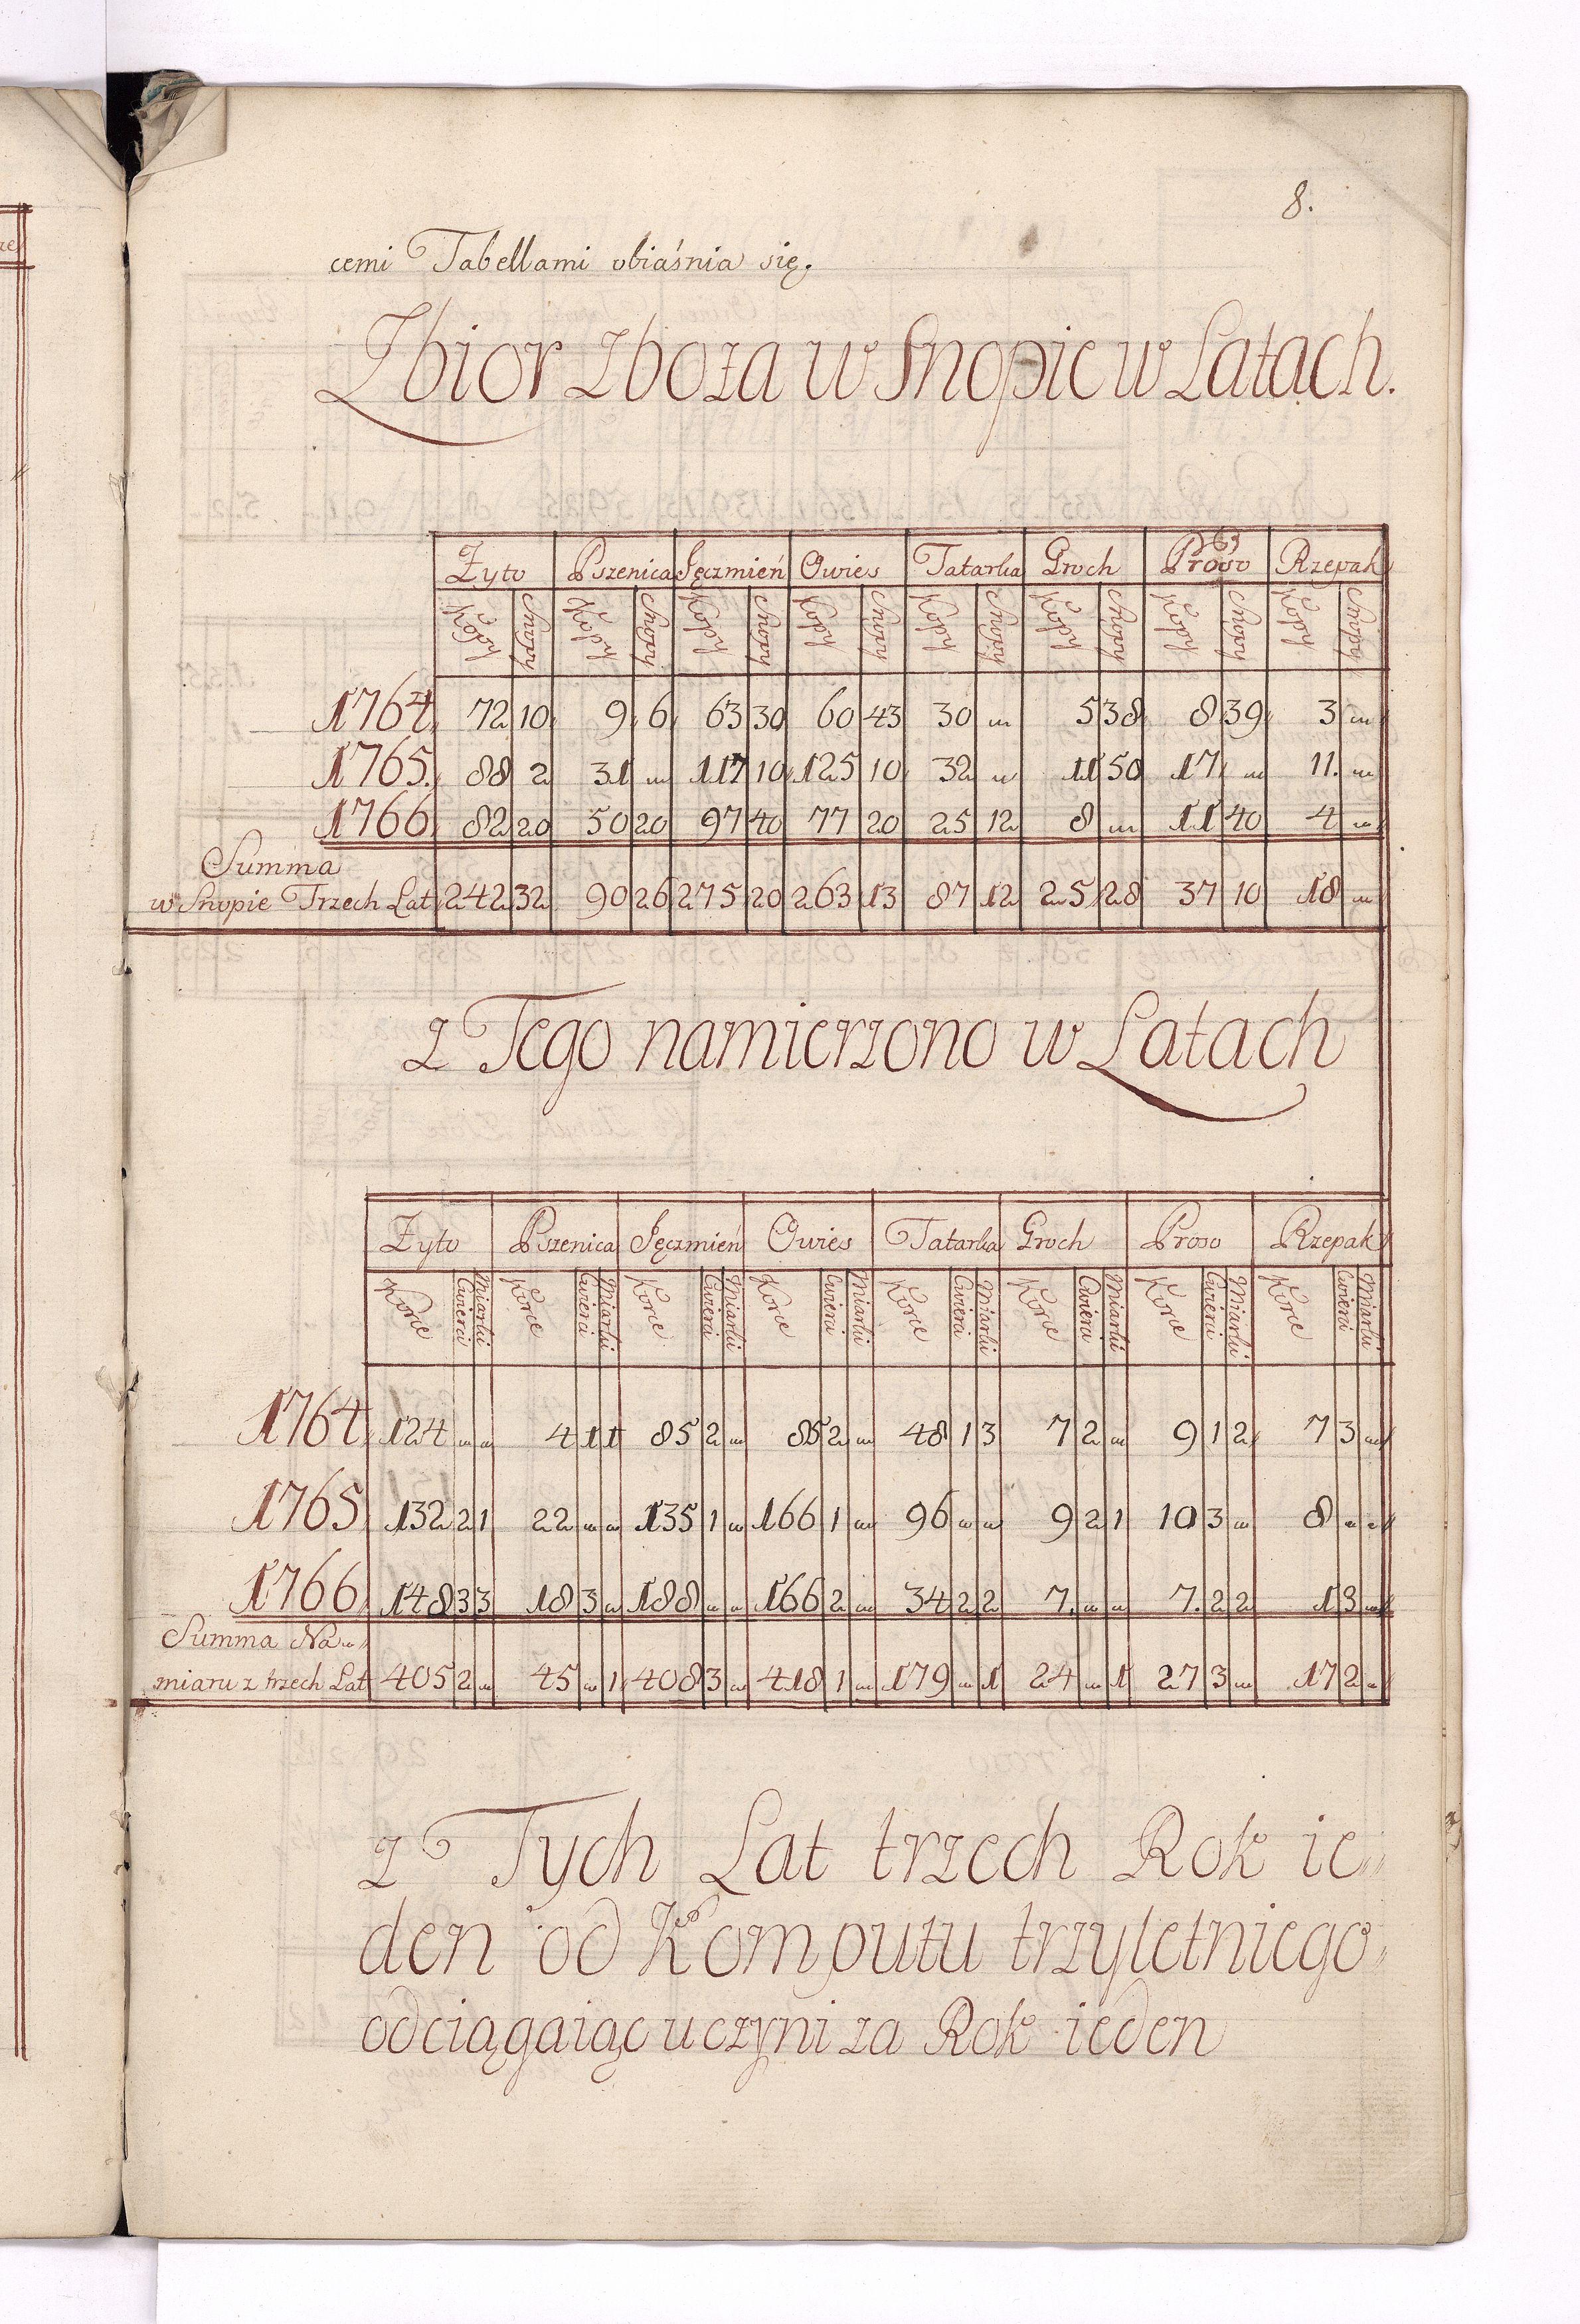 8.
cemi Tabellami obiaśnia się.
Zbior Zboza w Snopie w Latach.
Zyto Pszenica Jęczmień Owies Tatarka Groch Proso Rzepak
Kopy Snopy Kopy Snopy Kopy Snopy Kopy Snopy Kopy Snopy Kopy Snopy Kopy Snopy Kopy Snopy
1764 72 10 9 6 63 30 60 43 30 „ 5 38 8 39 3 „
1765. 88 2 31 „ 117 10 125 10 32 „ 11 50 17 „ 11. „
1766 82 20 50 20 97 40 77 20 25 12 8 „ 11 40 4 „
Summa
w Snopie Trzech Lat 242 32 90 26 275 20 263 13 87 12 25 28 37 10 18 „
z Tego namierzono w Latach
Zyto Pszenica Jęczmień Owies Tatarka Groch Proso Rzepak
Korce Cwierci Miarki Korce Cwierci Miarki Korce Cwierci Miarki Korce Cwierci Miarki Korce Cwierci Miarki Korce Cwierci Miarki Korce Cwierci Miarki Korce Cwierci Miarki
1764 124 „ „ 4 1 1 85 2 „ 85 2 „ 48 1 3 7 2 „ 9 1 2 7 3 „
1765 132 2 1 22 „ „ 135 1 „ 166 1 „ 96 „ „ 9 2 1 10 3 „ 8 „ „
1766 148 3 3 18 3 „ 188 „ „ 166 2 „ 34 2 2 7. „ „ 7. 2 2 1 3 „
Summa Na„
miaru z trzech Lat 405 2 „ 45 „ 1 408 3 „ 418 1 „ 179 „ 1 24 „ 1 27 3 „ 17 2 „
z Tych Lat trzech Rok ie„
den od Komputu trzyletniego
odciągaiąc uczyni za Rok ieden